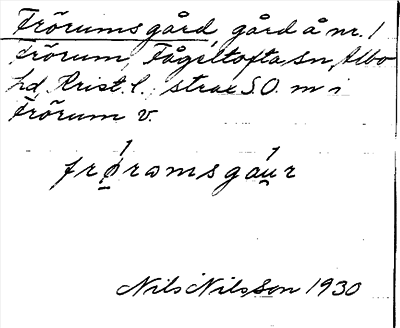 Frörumsgård, gård å nr. 1
Frörum, Fågeltofta sn, Albo
hd, Krist. l., strax S.O. m i
Frörum v.
frørəmsgau̯r
Nils Nilsson 1930